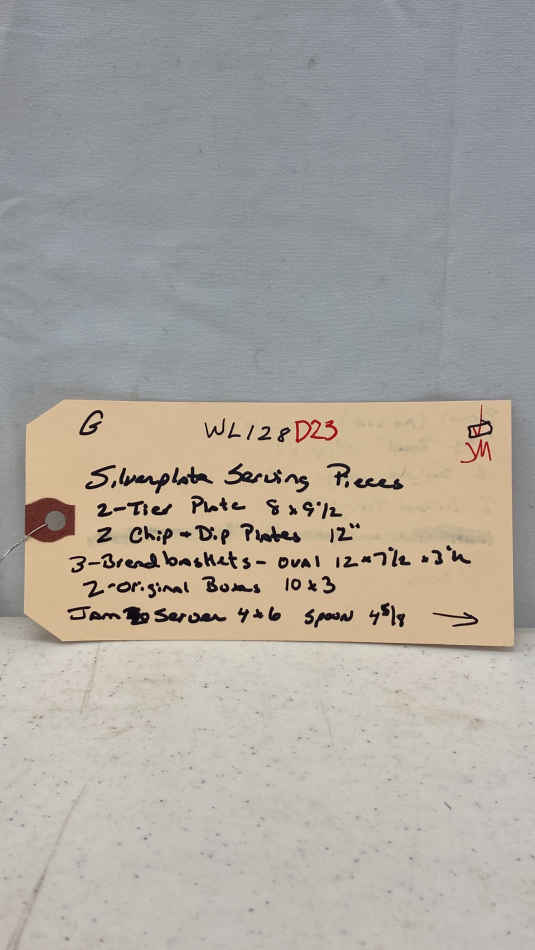 G WL128 D23
JM
Silverplate Serving Pieces
2-Tier Plate 8 x 9 1/2
2 Chip + Dip Plates 12"
3-Breadbaskets - oval 12 x 7 1/2 x 3"h
2-Original Boxes 10 x 3
Jam Server 4 x 6 Spoon 4 5/8 →